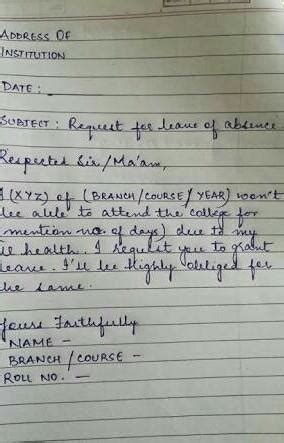 ADDRESS OF
INSTITUTION
DATE : _
SUBJECT : Request for leave of absence
Respected Sir/Ma'am,
I (XYZ) of (BRANCH/COURSE/YEAR) won't
be able to attend the college for
mention no. of days) due to my
ill health. I request you to grant
leave. I'll be Highly obliged for
the same.
Yours Faithfully
NAME -
BRANCH / COURSE -
ROLL NO. -